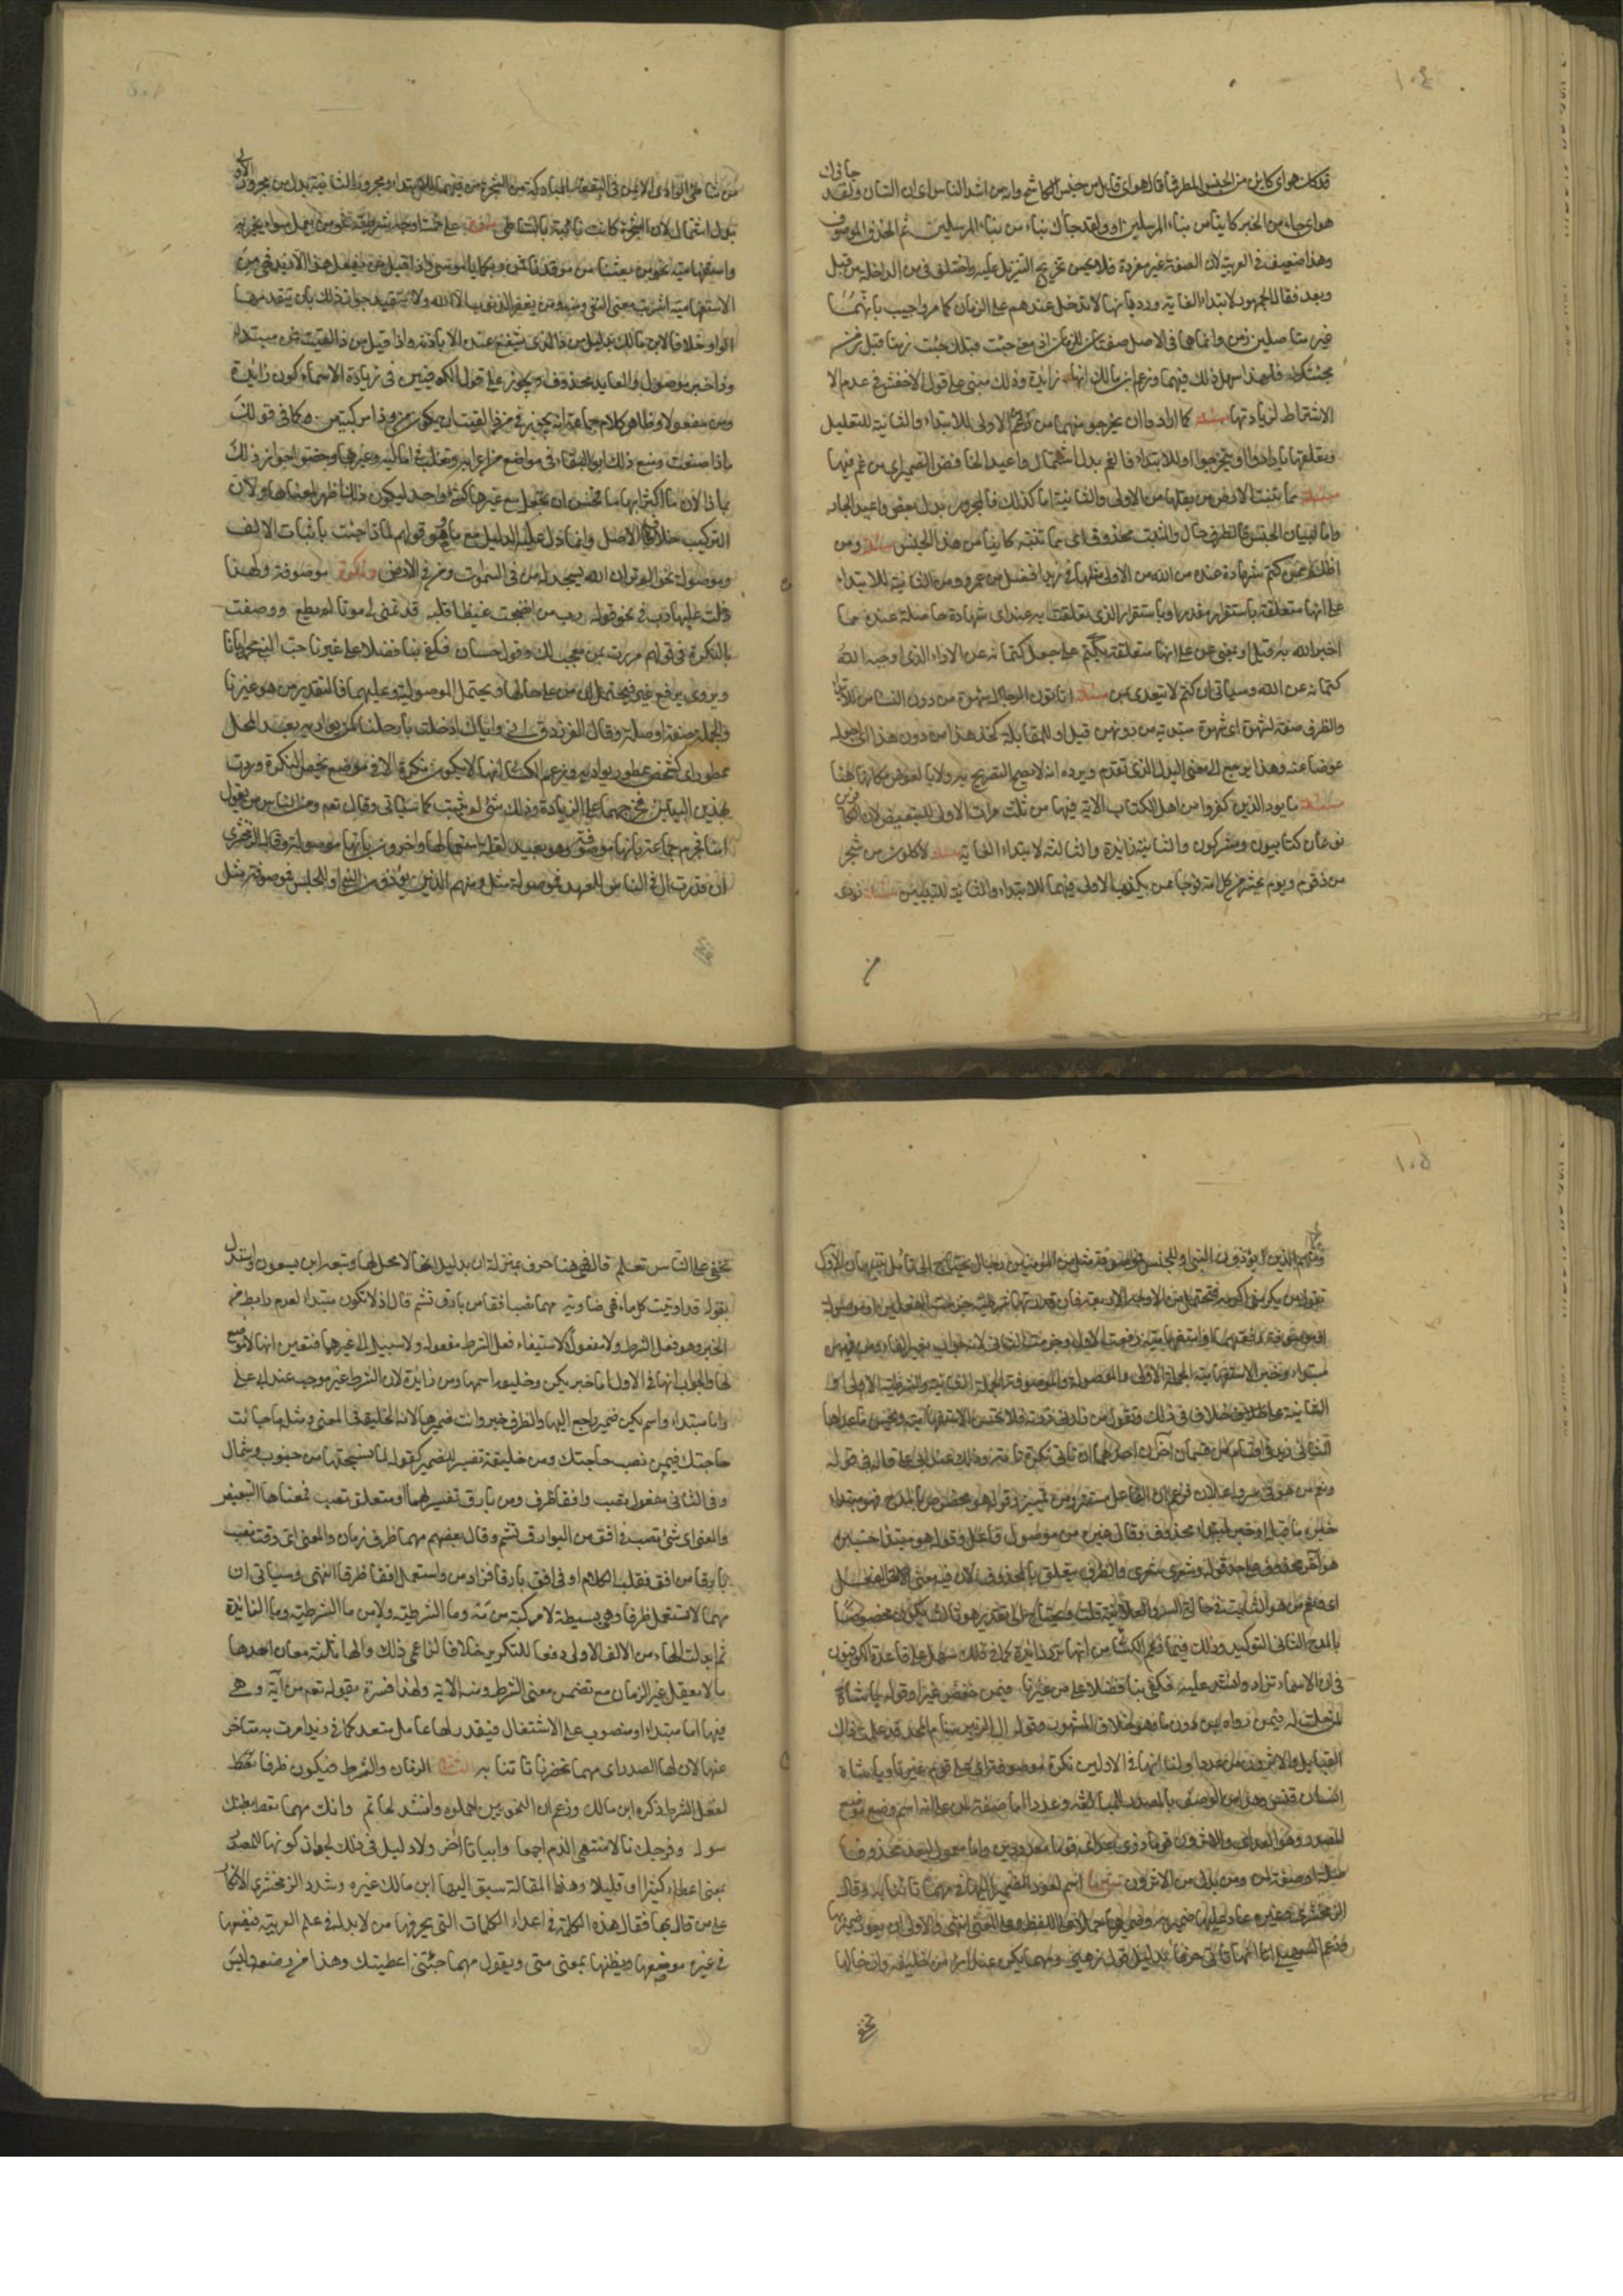 ١٠٤
جاءك
قد كان هو اى كاين من الجنس المطرف اقال هو اى قايل من جنس الكاشح وانه من اشد الناس اى ان الشان ولقد
هو اى جاء من الخبر كاينا من نباء المرسلين او ولقد جاءك نباء من نباء المرسلين ثم الحذف الموصوف
وهذا ضعيف فى العربية لان الصفة غير مفردة فلا يحسن تخريج التنزيل عليه واختلف فى من الداخلة من قبل
وبعد فقال الجمهور لابتداء الغاية ورد بانها لا تدخل عندهم على الزمان كما مر واجيب بانهما
غير متاصلين ومن وانما هما فى الاصل صفتان للزمان اذ معنى جئت قبلك جئت زمنا قبل زمن
مجئيك فلهذا سهل ذلك فيهما وزعم ابن مالك انها زايدة وذلك مبنى على قول الاخفش فى عدم الا
الاشتراط لزيادتها مسئلة كما ارادوا ان يخرجوا منها من غم الاولى للابتداء والثانية للتعليل
وتعلقها بارادوا او بيخرجوا او للابتداء فالغم بدل اشتمال واعيد الخافض الضمير اى من غم فيها
مسئلة مما تنبت الارض من بقلها من الاولى والثانية اما كذلك فالمجرور بدل بعض واعيد الجار
واما لبيان الجنس فالظرف حال والمنبت محذوف اى مما تنبته كاينا من هذا الجنس مسئلة ومن
اظلم ممن كتم شهادة عنده من الله من الاولى مثلها فى زيد افضل من عمرو ومن الثانية للابتداء
على انها متعلقة باستقرار مقدر او باستقرار الذى تعلقت به عند اى شهادة حاصلة عنده مما
اخبر الله به قيل او بمعنى عن على انها متعلقة بكتم على جعل كتمانه عن الاداء الذى اوجبه الله
كتمانه عن الله وسياتى ان كتم لا يتعدى بمن مسئلة اتاتون الرجال شهوة من دون النساء من للابتداء
والظرف صفة لشهوة اى شهوة مبتدئة من دونهن قيل او للمقابلة كخذ هذا من دون هذا اى اجعله
عوضا عنه وهذا يرجع الى معنى البدل الذى تقدم ويرده انه لا يصح التصريح به ولا بالعوض مكانها هنا
مسئلة ما يود الذين كفروا من اهل الكتاب الاية فيها من ثلث مرات الاولى للتبعيض لان الكافرين
نوعان كتابيون ومشركون والثانية زايدة والثالثة لابتداء الغاية مسئلة لاكلون من شجر
من زقوم ويوم نحشر من كل امة فوجا ممن يكذب الاولى فيهما للابتداء والثانية للتبيين مسئلة نودى
من
من شاطئ الوادى الايمن فى البقعة المباركة من الشجرة من فيهما للابتداء ومجرور الثانية بدل من مجرور الاولى
بدل اشتمال لان الشجرة كانت نابتة بالشاطئ على خمسة اوجه شرطية نحو من يعمل سوءا يجز به
واستفهامية نحو من بعثنا من مرقدنا فمن ربكما يا موسى واذا قيل من يفعل هذا الا زيد فهى من
الاستفهامية اشربت معنى النفى ومنه ومن يغفر الذنوب الا الله ولا يتقيد جواز ذلك بان يتقدمها
الواو خلافا لابن مالك بدليل من ذا الذى يشفع عنده الا باذنه واذا قيل من ذا لقيت فمن مبتداء
وذا خبر موصول والعايد محذوف ويجوز على قول الكوفيين فى زيادة الاسماء كون ذا زايدة
ومن مفعولا وظاهر كلام جماعة انه يجوز فى من ذا لقيت ان يكون من وذا مركبتين كما فى قولك
ماذا صنعت ومنع ذلك ابو البقاء فى مواضع من اعرابه وثعلب فى اماليه وغيرهما وخصوا جواز ذلك
بماذا لان ما اكثر ابهاما فحسن ان تجعل مع غيرها كشئ واحد ليكون ذلك اظهر لمعناها ولان
التركيب خلاف الاصل وانما دل عليه الدليل مع ما وهو قولهم لماذا جئت باثبات الالف
وموصولة نحو الم تر ان الله يسجد له من فى السموات ومن فى الارض ونكرة موصوفة ولهذا
دخلت عليها رب فى نحو قوله رب من انضجت غيظا قلبه قد تمنى لى موتا لم يطع ووصفت
بالنكرة فى قولهم مررت بمن معجب لك وقول حسان فكفى بنا فضلا على غيرنا حب النبى محمد ايانا
ويروى برفع غير فيحتمل ان من على حالها ويحتمل الموصولية وعليهما فالتقدير من هو غيرنا
والجملة صفة او صلة وقال الفرزدق انى واياك اذ حلت بارحلنا كمن بواديه بعد المحل
ممطور اى كشخص ممطور بواديه وزعم الكسائى انها لا تكون نكرة الا فى موضع يخص النكرة ورد
بهذين البيتين فخرجهما على الزيادة وذلك شئ لم يثبت كما سياتى وقال تعالى ومن الناس من يقول
امنا فجزم جماعة بانها موصوفة وهو بعيد لقلة استعمالها واخرون بانها موصولة وقال الزمخشرى
ان قدرت ال فى الناس للعهد فموصولة مثل ومنهم الذين يؤذون النبى او للجنس فموصوفة مثل
١٠٥
ومنهم الذين يؤذون النبى او للجنس فموصوفة مثل من المؤمنين رجال يحتاج الى تامل تنبيهان الاول
تقول من يكرمنى اكرمه فتحتمل من الاوجه الاربعة فان قدرتها شرطية جزمت الفعلين او موصولة
او موصوفة رفعتهما او استفهامية رفعت الاول وجزمت الثانى لانه جواب بغير الفاء ومن فيهن
مبتداء وخبر الاستفهامية الجملة الاولى والموصولة والموصوفة الجملة الثانية والشرطية الاولى او
الثانية على خلاف فى ذلك وتقول من زارنى زرته فلا تحسن الاستفهامية ويحسن ما عداها
الثانى زيد فى اقسام من قسمان اخران احدهما ان تاتى نكرة تامة وذلك عند ابى على قاله فى قوله
ونعم من هو فى سر واعلان فزعم ان الفاعل مستتر ومن تمييز وقوله هو مخصوص بالمدح فهو مبتداء
خبره ما قبله او خبر لمبتداء محذوف وقال غيره من موصول فاعل وقوله هو مبتدا خبره
هو اخر محذوف على حد قوله وشعرى شعرى والظرف متعلق بالمحذوف لان فيه معنى الفعل
اى ونعم من هو الثابت فى حالة السر والعلانية قلت ويحتاج الى تقدير هو ثالث يكون مخصوصا
بالمدح الثانى التوكيد وذلك فيما زعم الكسائى من انها ترد زايدة كما وذلك سهل على قاعدة الكوفيين
فى ان الاسماء تزاد وانشد عليه فكفى بنا فضلا على من غيرنا فيمن خفض غيرنا وقوله يا شاة
من قنص لمن حلت له فيمن رواه بمن دون ما وهو خلاف المشهور وقوله ال الزبير سنام المجد قد علمت ذاك
القبايل والاثرون من عددا ولنا انها فى الاولين نكرة موصوفة اى على قوم غيرنا ويا شاة
انسان قنص وهذا من الوصف بالمصدر للمبالغة وعددا اما صفة لمن على انه اسم وضع موضع
المصدر وهو العد اى والاثرون قوما ذوى عد اى قوما معدودين واما معمول ليعد محذوفا
صلة او صفة لمن ومن بدل من الاثرون مهما اسم لعود الضمير اليها فى مهما تاتنا به وقال
الزمخشرى وغيره عاد عليها ضمير به وضمير بها حملا على اللفظ وعلى المعنى انتهى والاولى ان يعود ضمير بها
وزعم السهيلى انها تاتى حرفا بدليل قول زهير ومهما يكن عند امرئ من خليقة وان خالها
تخفى
تخفى على الناس تعلم قال فهى هنا حرف بمنزلة ان بدليل انها لا محل لها وتبعه ابن يسعون واستدل
بقوله قد اوبيت كل ماء فهى ضاوية مهما تصب افقا من بارق تشم قال اذ لا تكون مبتداء لعدم رابط من
الخبر وهو فعل الشرط ولا مفعولا لاستيفاء فعل الشرط مفعوله ولا سبيل الى غيرهما فتعين انها لا موضع
لها والجواب انها فى الاول اما خبر يكن وخليقة اسمها ومن زايدة لان الشرط غير موجب عند ابى على
واما مبتداء واسم يكن ضمير راجع اليها والظرف خبر وانث ضميرها لانه الخليقة فى المعنى ومثله ما جاءت
حاجتك فيمن نصب حاجتك ومن خليقة تفسير للضمير كقوله لما نسجتها من جنوب وشمال
وفى الثانى مفعول تصب وافقا ظرف ومن بارق تفسير لمهما او متعلق بتصب فمعناها التبعيض
والمعنى اى شئ تصب فى افق من البوارق تشم وقال بعضهم مهما ظرف زمان والمعنى اى وقت تصب
بارقا من افق فقلب الكلام او فى افق بارقا فزاد من واستعمل افقا ظرفا انتهى وسياتى ان
مهما لا تستعمل ظرفا وهى بسيطة لا مركبة من مه وما الشرطية ولا من ما الشرطية وما الزائدة
ثم ابدلت الهاء من الالف الاولى دفعا للتكرير خلافا لزاعمى ذلك ولها ثلثة معان احدها
ما لا يعقل غير الزمان مع تضمن معنى الشرط ومنه الاية ولهذا فسرت بقوله تعم من آية وهى
فيها اما مبتداء او منصوب على الاشتغال فيقدر لها عامل متعد كما فى زيدا مررت به متاخر
عنها لان لها الصدر اى مهما تحضرنا تاتنا به الثانى الزمان والشرط فيكون ظرفا
لفعل الشرط ذكره ابن مالك وزعم ان النحويين اهملوه وانشد لحاتم وانك مهما تعط بطنك
سوله وفرجك نالا منتهى الذم اجمعا وابياتا اخر ولا دليل فى ذلك لجواز كونها للمصدر
بمعنى اعطاء كثيرا او قليلا وهذه المقالة سبق اليها ابن مالك غيره وشدد الزمخشرى الانكار
على من قال بها فقال هذه الكلمة فى اعداد الكلمات التى يحرفها من لا يد له فى علم العربية فيضعها
فى غير موضعها ويظنها بمعنى متى ويقول مهما جئتنى اعطيتك وهذا من وضعه وليس